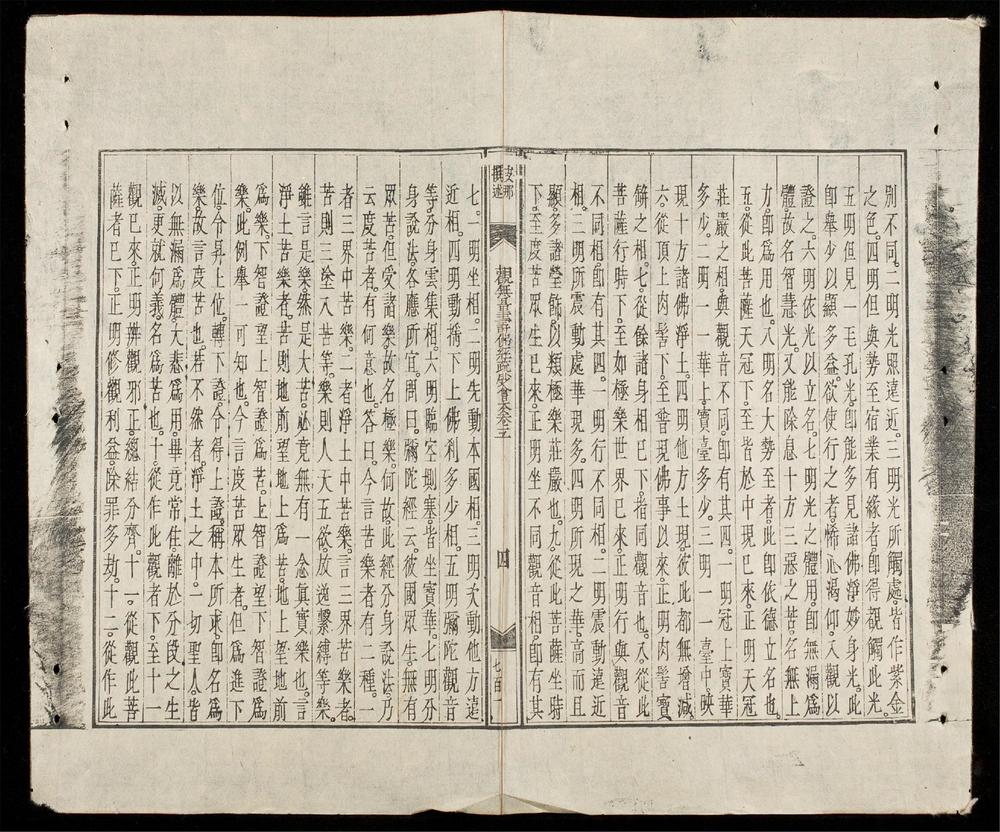 別不同。二明光照遠近。三明光所觸處。皆作紫金
之色。四明但與勢至宿業有緣者。即得覩觸此光。
五明但見一毛孔光。即能多見諸佛淨妙身光。此
即舉少以顯多益。欲使行之者悕心渴仰。入觀以
證之。六明依光以立名。七明光之體用。即無漏爲
體。故名智慧光。又能除息十方三惡之苦。名無上
力。即爲用也。八明名大勢至者。此即依德立名也。
五。從此菩薩天冠下。至皆於中現已來。正明天冠
莊嚴之相。與觀音不同。即有其四。一明冠上寶華
多少。二明一一華上。寶臺多少。三明一一臺中。映
現十方諸佛淨土。四明他方土現。彼此都無增減。
六。從頂上肉髻下。至普現佛事以來。正明肉髻寶
缾之相。七。從餘諸身相已下。指同觀音也。八。從此
菩薩行時下。至如極樂世界已來。正明行與觀音
不同相。即有其四。一明行不同相。二明震動遠近
相。三明所震動處。華現多。四明所現之華。高而且
顯。多諸瑩飾。以類極樂莊嚴也。九。從此菩薩坐時
下。至度苦眾生已來。正明坐不同觀音相。即有其
支那
撰述
觀無量壽佛經疏妙會本卷三
四
七百一
七。一明坐相。二明先動本國相。三明次動他方遠
近相。四明動搖下上佛刹多少相。五明彌陀觀音
等分身雲集相。六明臨空側塞。皆坐寶華。七明分
身說法。各應所宜。問曰。彌陀經云。彼國眾生。無有
眾苦。但受諸樂。故名極樂。何故此經分身說法。乃
云度苦者。有何意也。答曰。今言苦樂者有二種。一
者三界中苦樂。二者淨土中苦樂。言三界苦樂者。
苦則三塗八苦等。樂則人天五欲。放逸繫縛等樂。
雖言是樂。然是大苦。必竟無有一念真實樂也。言
淨土苦樂者。苦則地前望地上爲苦。地上望地前
爲樂。下智證望上智證爲苦。上智證望下智證爲
樂。此例舉一可知也。今言度苦眾生者。但爲進下
位。令昇上位。轉下證。令得上證。稱本所求。即名爲
樂。故言度苦也。若不然者。淨土之中。一切聖人。皆
以無漏爲體。大悲爲用。畢竟常住。離於分段之生
滅。更就何義。名爲苦也。十。從作此觀者下。至十一
觀已來。正明辨觀邪正。總結分齊。十一。從觀此菩
薩者已下。正明修觀利益。除罪多劫。十二。從作此